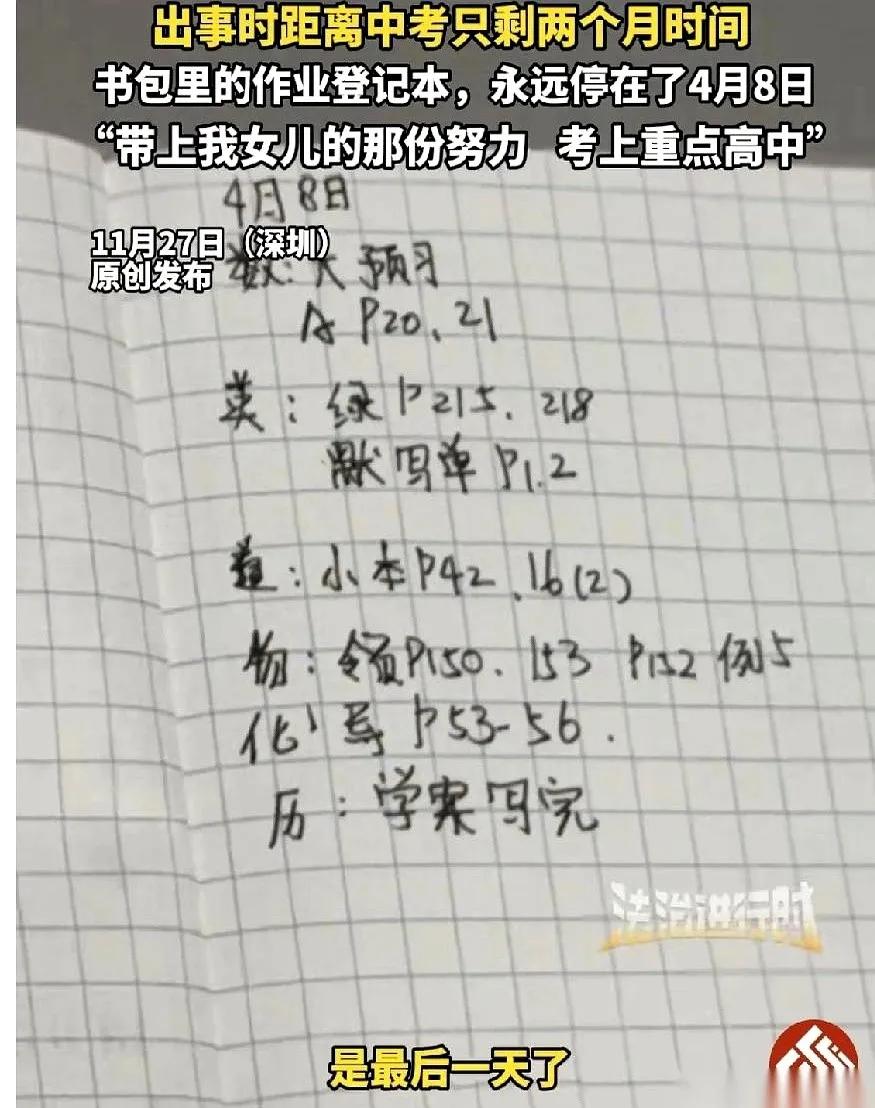 出事时距离中考只剩两个月时间
书包里的作业登记本，永远停在了4月8日
“带上我女儿的那份努力 考上重点高中”
4月8日
11月27日（深圳）
原创发布
数：大预习
A P20、21
英：绿P215、218
默写单P1.2
道：小本P42、16(2)
物：领P150、153 P152例5
化 导P53-56.
历：学案写完
法治进行时
是最后一天了